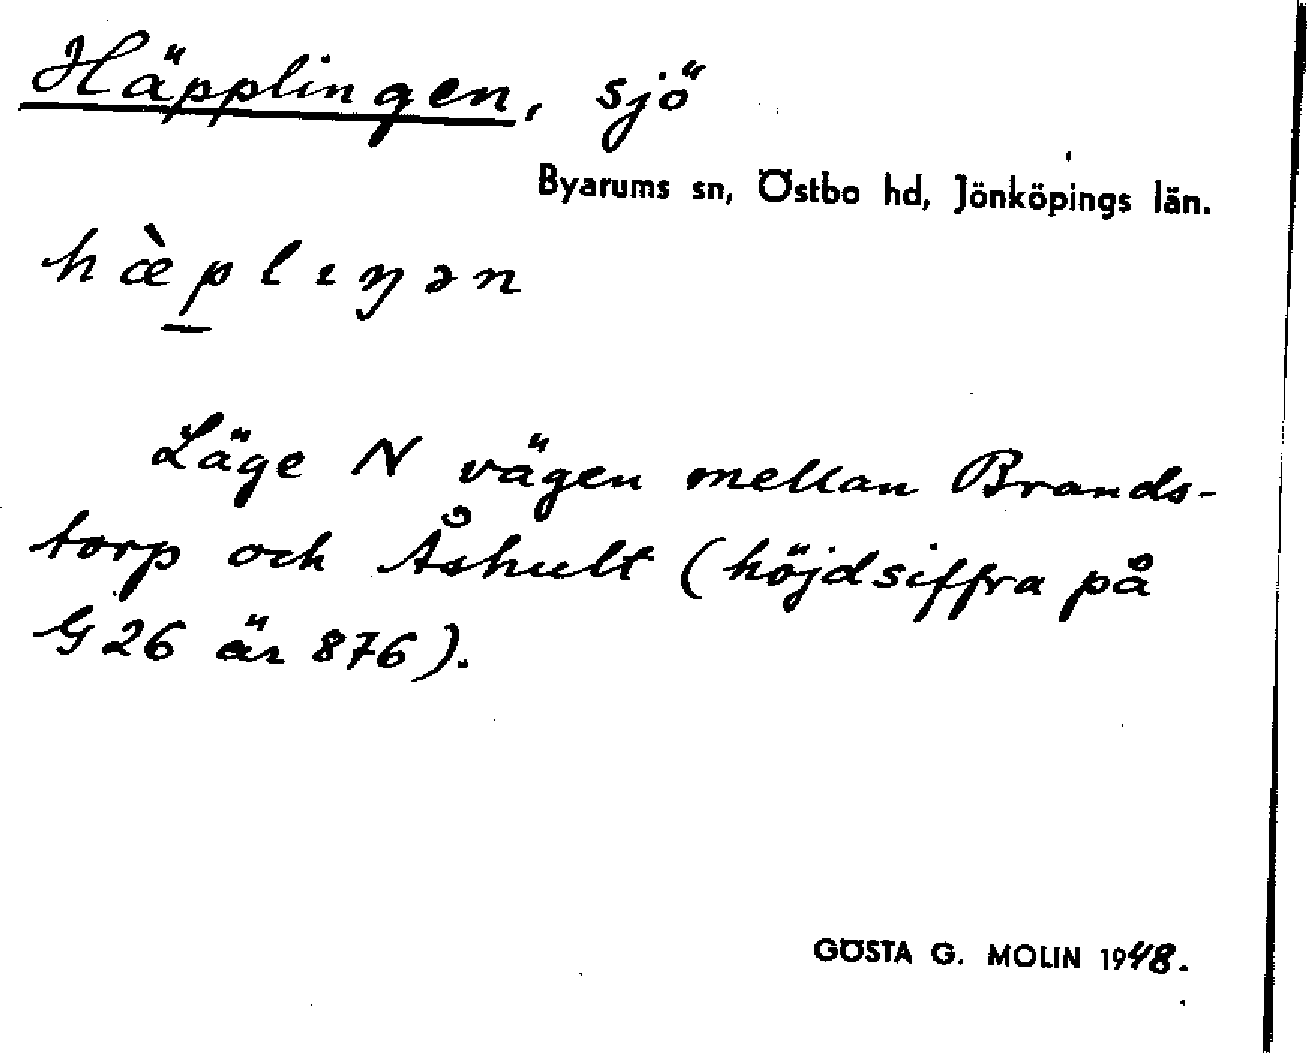 Häpplingen, sjö
Byarums sn, Östbo hd, Jönköpings län.
hæ̀plıŋən
Läge N vägen mellan Brands-
torp och Åshult (höjdsiffra på
G 26 är 876).
GÖSTA G. MOLIN 1948.